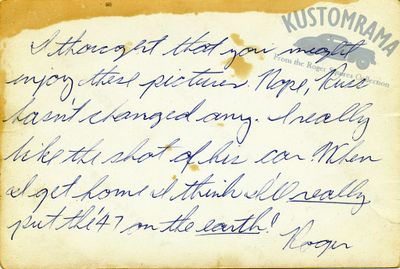 KUSTOMRAMA
From the Roger Collection
I thought that you might
enjoy these pictures. Nope, Russ
hasn't changed any. I really
like the shot of his car. When
I get home I think I'll really
put the '47 on the earth!
Roger